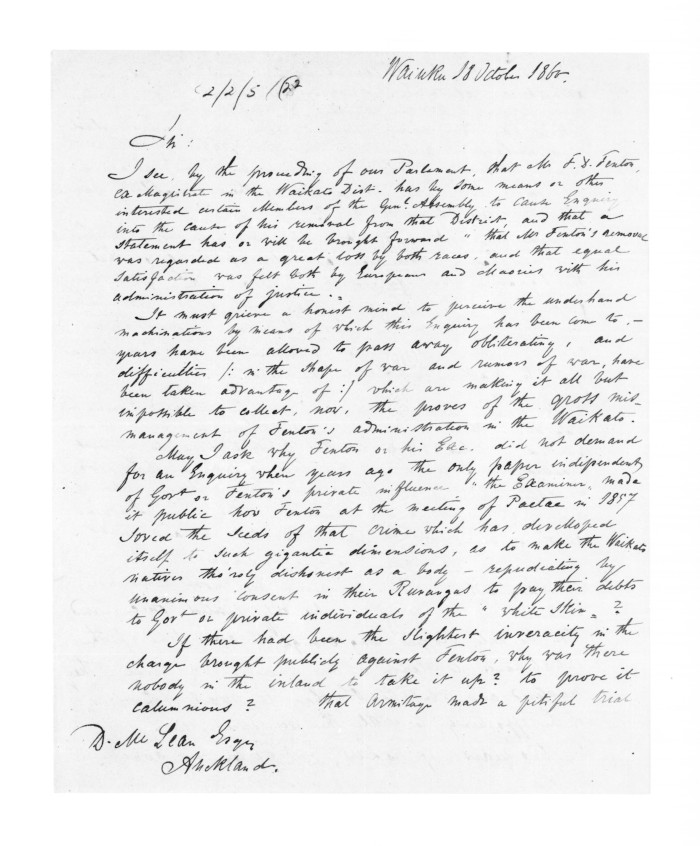 Waiuku 18 October 1860.
2/2/5/62
Sir:
I see, by the proceeding of our Parlement, that Mr F. D. Fenton,
ex Magistrate in the Waikato Dist. has by some means or other
interested certain Members of the Genl. Assembly to cause Enquiry
into the cause of his removal from that District, and that a
Statement has or will be brought forward " that Mr Fenton's removal
was regarded as a great loss by both races, and that equal
Satisfaction was felt both by Europeans and Maories with his
administration of justice. "
It must grieve a honest mind to perceive the underhand
machinations by means of which this Enquiry has been come to, -
years have been allowed to pass away obliterating, and
difficulties /: in the shape of war and rumors of war, have
been taken advantage of :/ which are making it all but
impossible to collect, now, the proves of the gross mis-
management of Fenton's administration in the Waikato.
May I ask why Fenton or his Eac. did not demand
for an Enquiry when years ago the only paper independent
of Govt or Fenton's private influence "the Examiner" made
it public how Fenton at the meeting of Paetae in 1857
Soved the Seeds of that Crime which has developed
itself to such gigantia dimensions, as to make the Waikato
natives tho'roly dishonest as a body - repudiating by
unanimous consent in their Runangas to pay their debts
to Govt or private individuals of the " white Skin " ?
If there had been the slightest inveracity in the
charge brought publicly against Fenton, why was there
nobody in the inland to take it up? to prove it
calumnious ? that Armitage made a pitiful trial
D. Mc Lean Esqr
Auckland.